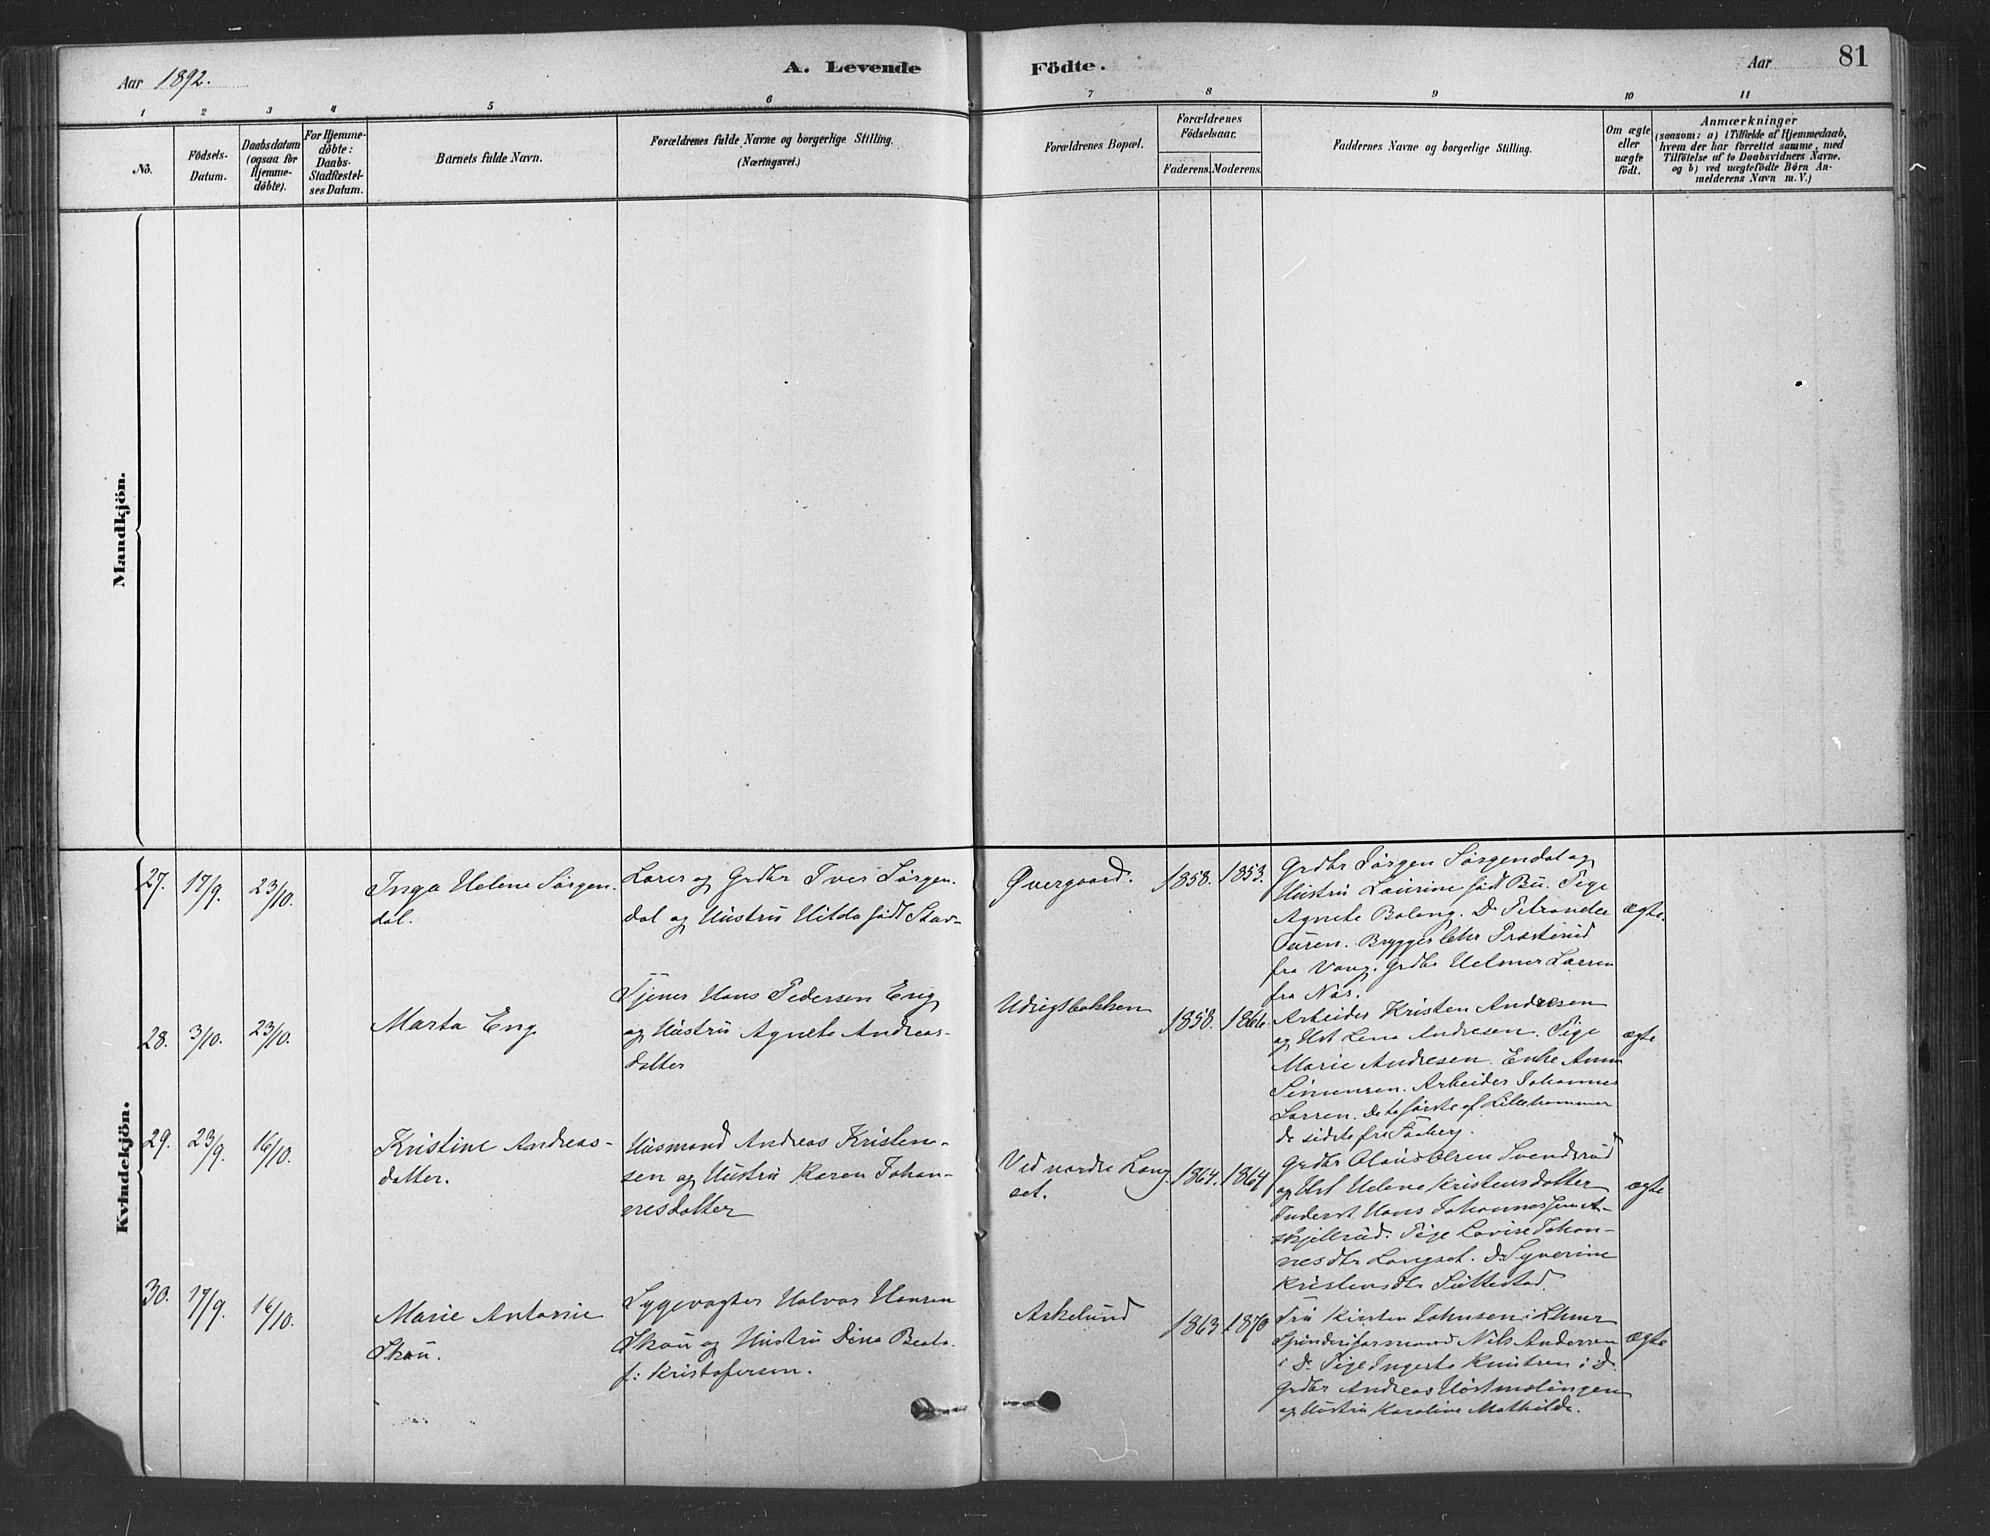 Aar 1892.
A. Levende
Födte.
Aar
81
1 2 3 4 5 6 7 8 9 10 11
No.
Födsels-
Datum.
Daabsdatum
(ogsaa for
Hjemme-
döbte).
For Hjemme-
döbte:
Daabs-
Stadfæstel-
ses Datum.
Barnets fulde Navn.
Forældrenes fulde Navne og borgerlige Stilling.
(Næringsvei.)
Forældrenes Bopæl.
Forældrenes
Födselsaar.
Faderens. Moderens.
Faddernes Navne og borgerlige Stilling.
Om ægte
eller
uægte
födt.
Anmærkninger
(saasom: a) i Tilfælde af Hjemmedaab,
hvem der har forrettet samme, med
Tilföielse af to Daabsvidners Navne.
og b) ved uægtefödte Börn An-
melderens Navn m. V.)
Mandkjön.
Kvindekjön.
27. 17/9. 23/10.
Inga Helene Sørgen-
dal.
Lærer og Grdbr Iver Sørgen-
dal og Hustru Hilda født Stav-
Øvergaard.
1858. 1853.
Grdbr Jørgen Sørgendal og
Hustru Laurine født Bu. Pige
Agnete Boleng. Do Petrondee
Turen. Brygger Præsterud
fra Vang. Grdbr Helmer Larsen
fra Næs.
ægte.
28. 3/10. 23/10.
Marta Eng
Tjener Hans Pedersen Eng
og Hustru Agnete Andreas-
datter
1858. 1866.
Arbeider Kristen Andresen
og Hst Lena Andresen. Pige
Marie Andresen. Enke Anne
Simensen. Arbeider Johannes
Larsen. De to første af Lillehammer
de sidste fra Faaberg.
ægte
29. 23/9. 16/10.
Kristine Andreas-
datter.
Husmand Andreas Kristen-
sen og Hustru Karen Johan-
nesdatter
Ved nordre Lang-
set.
1864. 1864
Grdbr Olaus Olsen Svendsrud
og Hst Helene Kristensdatter
Inderst Hans Johannessen
Skjellerud. Pige Lovise Johan-
nesdtr Langset. Do Syverine
Kristensdtr Suttestad.
ægte
30. 17/9. 16/10.
Marie Antonie
Skau.
Sygevogter Halvor Hansen
Skau og Hustru Dina Beata
f: Kristofersen.
Askelund
1863 1870
Fru Kirsten Johnsen i Lhmr
Nils Andersen
i Do. Pige Ingerta Knutsen i D.
Grdbr Andreas Hostmælingen
og Hustru Karoline Mathilde.
ægte